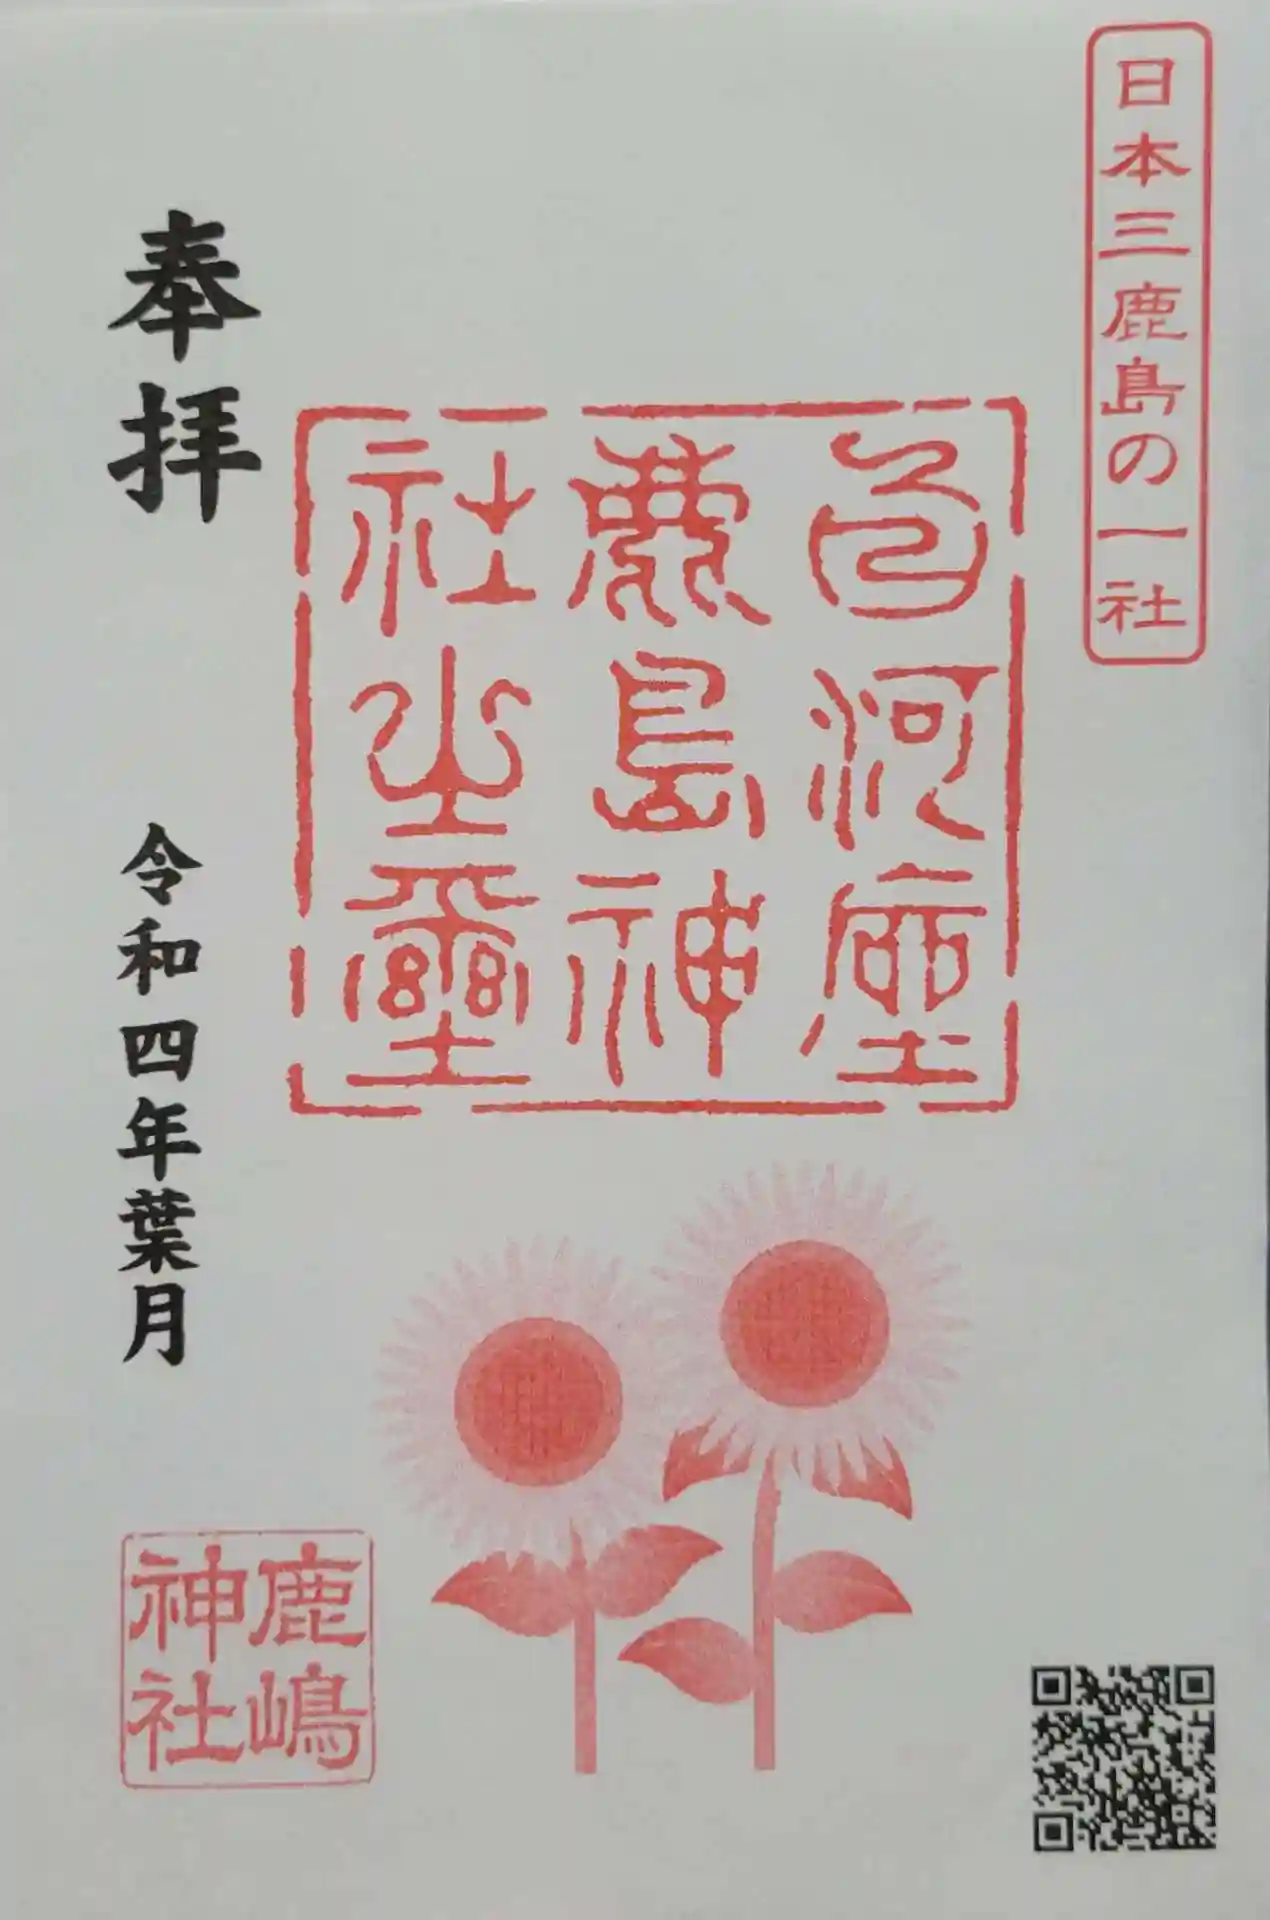 日本三鹿島の一社
河座
鹿島神
社之璽
奉拝
令和四年葉月
鹿嶋
神社